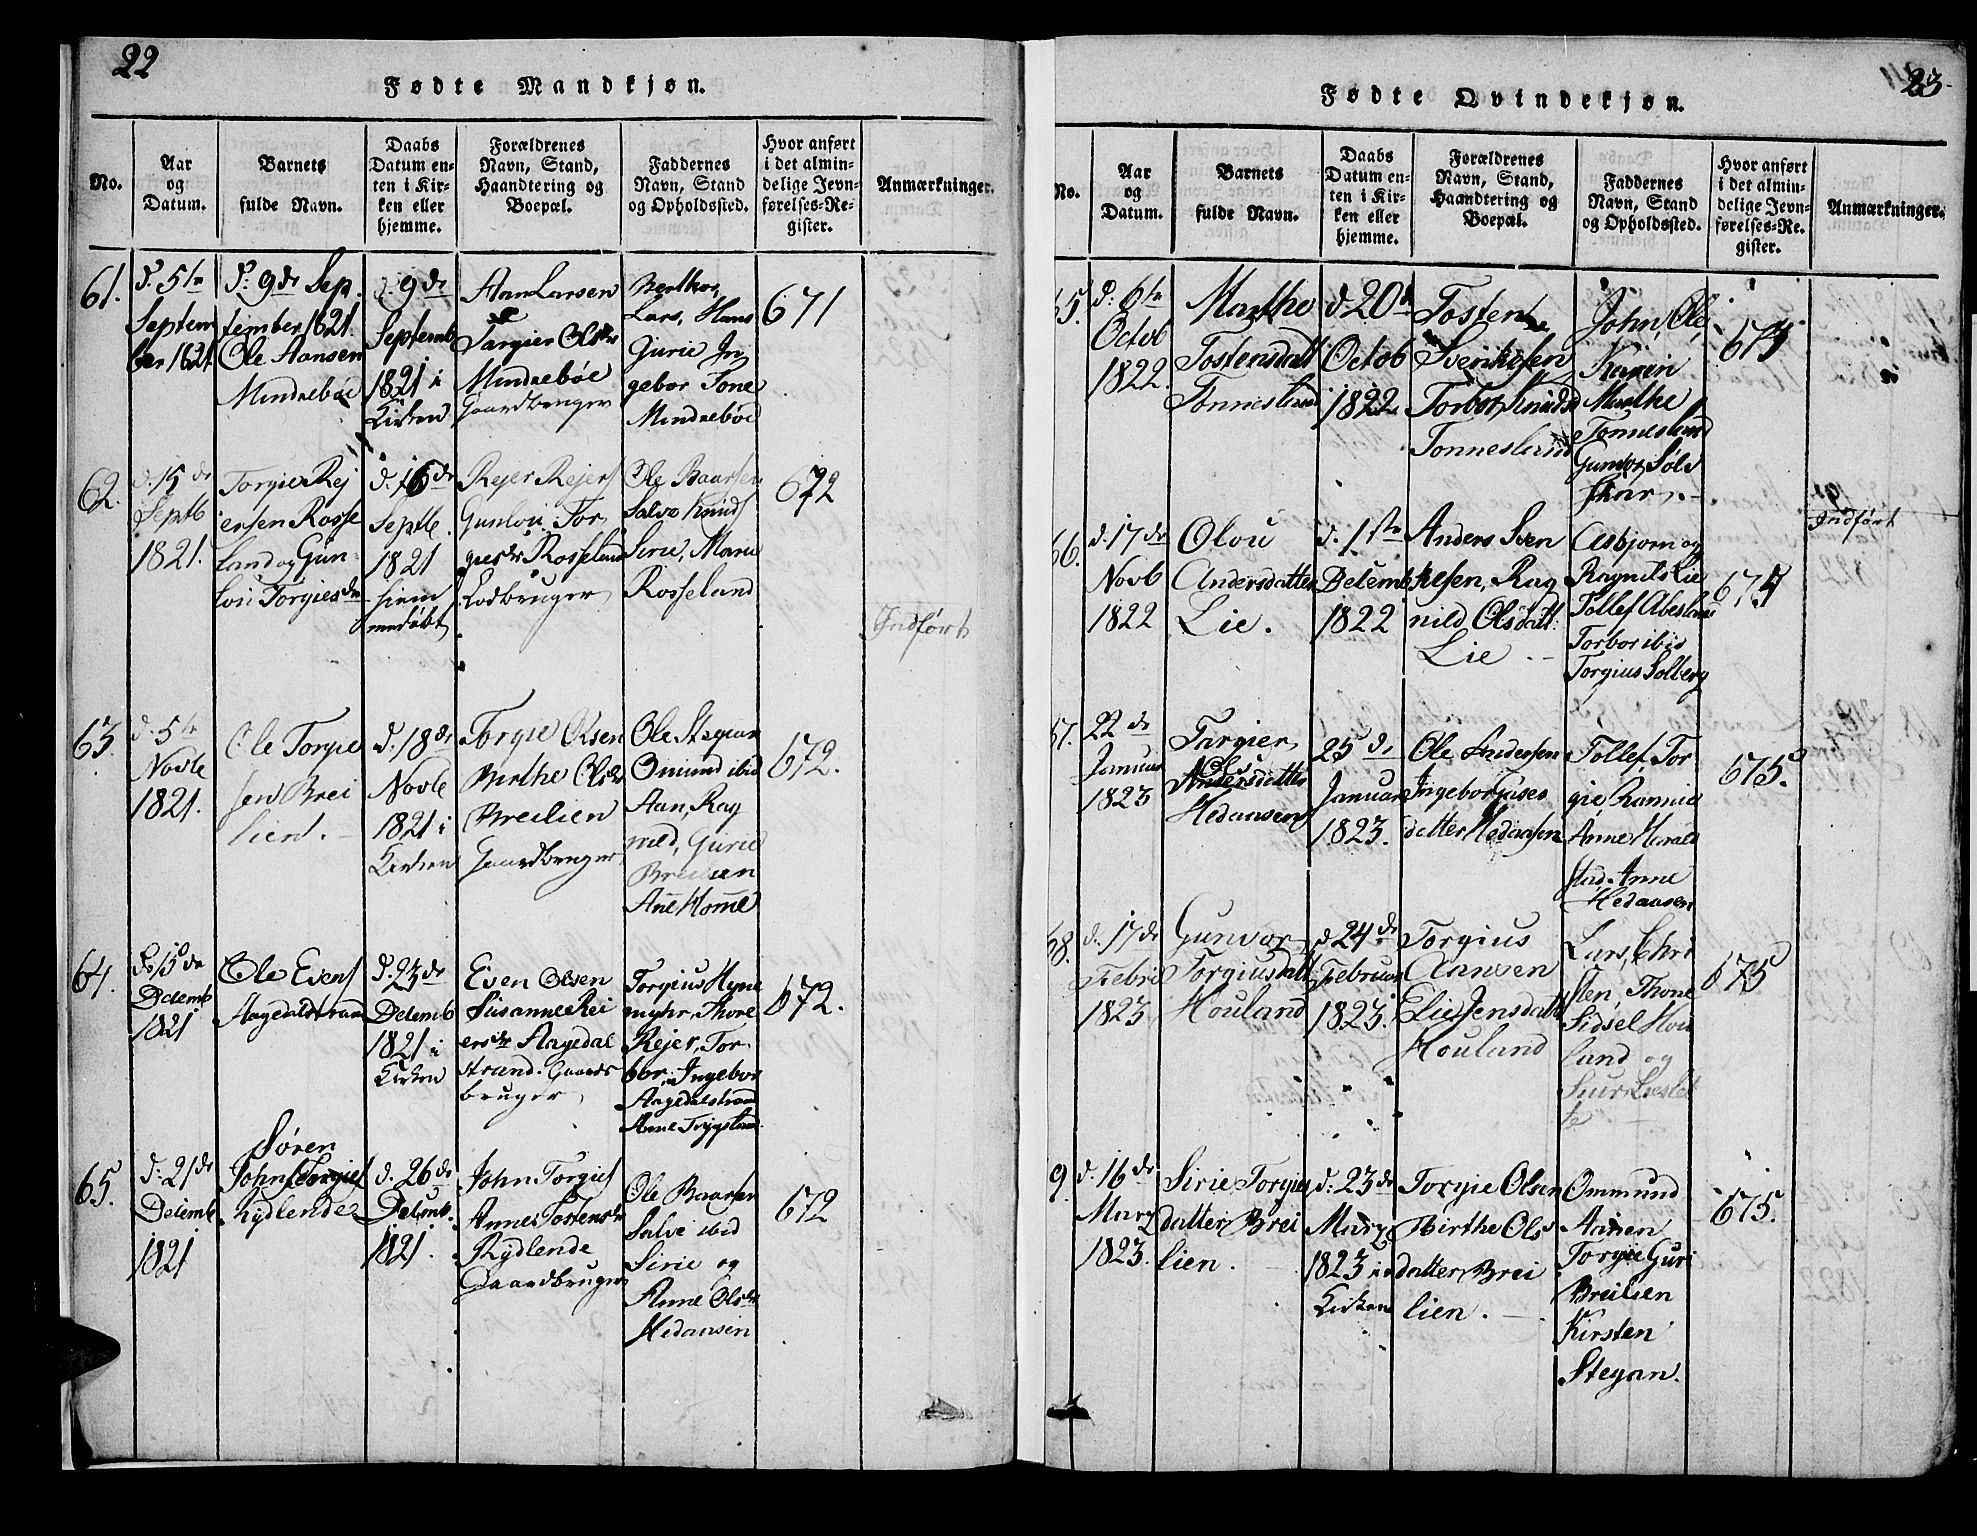 22
Fødte Mandkjøn.
No.
Aar
og
Datum.
Barnets
fulde Navn.
Daabs
Datum en-
ten i Kir-
ken eller
hjemme.
Forældrenes
Navn, Stand,
Haandtering og
Boepæl.
Faddernes
Navn, Stand
og Opholdssted.
Hvor anført
i det almin-
delige Jevn-
førelses-Re-
gister.
Anmærkninger.
61.
d. 5te
Septem
ber 1821
d. 9de Sep
tember 1821.
Ole Aansen
Mindrebøe
9de
Septemb
1821 i
Kirken
Aan Larsen
Targier Olsdr
Mindrebøe
Gaardbruger
Lars, Hans
Gurie In
gebor Tone
Mindrebøe
671
62.
d. 15de
Septb
1821.
Torgie Rej
ersen Rosse
land og Gun
lou Torgiesdr
d. 16de
Septb.
1821
hiem
medøbt
Rejer Rejers
Gunlou Tor
giesdr Rosseland
Lodbruger
Ole Baarsen
Salve Knuds
Sirie, Marie
Rosseland
672
Indført
63.
d. 5te
Novb
1821.
Ole Torgie
sen Brei
lien.
d. 18de
Novb
1821 i
Kirken
Torgie Olsen
Birthe Olsdr
Breilien
Gaardbruger
Ole Stegan
Omund ibid
Aan, Rag
nild, Gurie
Breilien
Ane Homme
672.
64.
d. 15de
Decemb
1821
Ole Evens
Aagedalstrand
d. 23de
Decemb
1821 i
Kirken
Even Olsen
Susanne Rei
ersdr Aagedal
strand. Gaard
bruger
Torgius Hyne
myhr, Thore
Rejer, Tor
bor, Ingebor
Aagedalstrand
Anne Trygsland
672.
65.
d. 21de
Decemb
1821
Søren
Johns Torgies
Rydlende
d. 26de
Decemb.
1821.
John Torgies
Anne Tostensdr
Rydlende
Gaardbruger
Ole Baarsen
Salve ibid
Sirie og
Anne Olsdr
Hedansen
672
23
Fødte Qvindekjøn.
No.
Aar
og
Datum.
Barnets
fulde Navn.
Daabs
Datum en-
ten i Kir-
ken eller
hjemme.
Forældrenes
Navn, Stand,
Haandtering og
Boepæl.
Faddernes
Navn, Stand
og Opholdssted.
Hvor anført
i det almin-
delige Jevn-
førelses-Re-
gister.
Anmærkninger.
65.
d. 6te
Octob
1822.
Marthe
Tostensdatt
Tonnesland
d. 20de
Octob
1822
Tosten
Svenkesen
Torbor Knudsd
Tonnesland
John, Ole
Karen
Marthe
Tonnesland
Gunvor Sølv
skar.
674
66.
d. 17de
Novb
1822
Olou
Andersdatter
Lie.
d. 1ste
Decemb
1822
Anders Sven
kesen, Rag
nild Olsdatt:
Lie.
Asbjørn og
Ragnild Lie
Tollef Abesland
Torbor ibid
Torgius Solberg
674
Indført
67.
22de
Januar
1823
Targier
Oles
Andersdatter
Hedansen
25de
Januar
1823.
Ole Andersen
Ingebor Gases
datter Hedansen
Tollef, Tor
gie Ramnie
Anne Harald
stad. Anne
Hedaasen
675.
68.
d. 17de
Febr
1823
Gunvor
Torgiusdatt
Houland
d. 24de
Februar
1823.
Torgius
Aansen
Lie Jensdatt
Houland
Lars, Chri
sten, Thone
Sidsel Hou
land og
675
9.
d. 16de
Marz
1823.
Sirie Torgies
datter Brei
lien.
d: 23de
Marz
1823 i
Kirken
Torgie Olsen
Birthe Ols
datter Brei
lien.
Ommund
Aanen
Torgie Guri
Breilien
Kirsten
Stegan.
675.